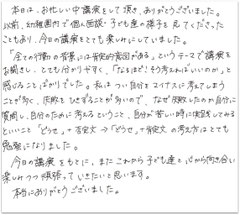 本日は、お忙しい中講演をして頂き、ありがとうございました。
以前、幼稚園内で個人面談・子ども達の様子を見てくださった
こともあり、今日の講演をとても楽しみにしていました。
「全ての行動の背景には肯定的意図がある。」というテーマで講演を
お聞きし、とても分かりやすく、「なるほど！そう考えればいいのか。」と
感じることばかりでした。私は、つい自分をマイナスに考えてしまう
ことが多く、失敗をしてしまうことが多いので、なぜ失敗したのか自分に
質問し、自分のために考えるということ、自分が苦しい時に実践してみる
といいこと「どうせ。」+否定文→「どうせ。」+肯定文の考え方はとても
勉強になりました。
今日の講演をもとに、またこれから子ども達と心から向き合い
楽しみつつ頑張っていきたいと思います。
本当にありがとうございました。